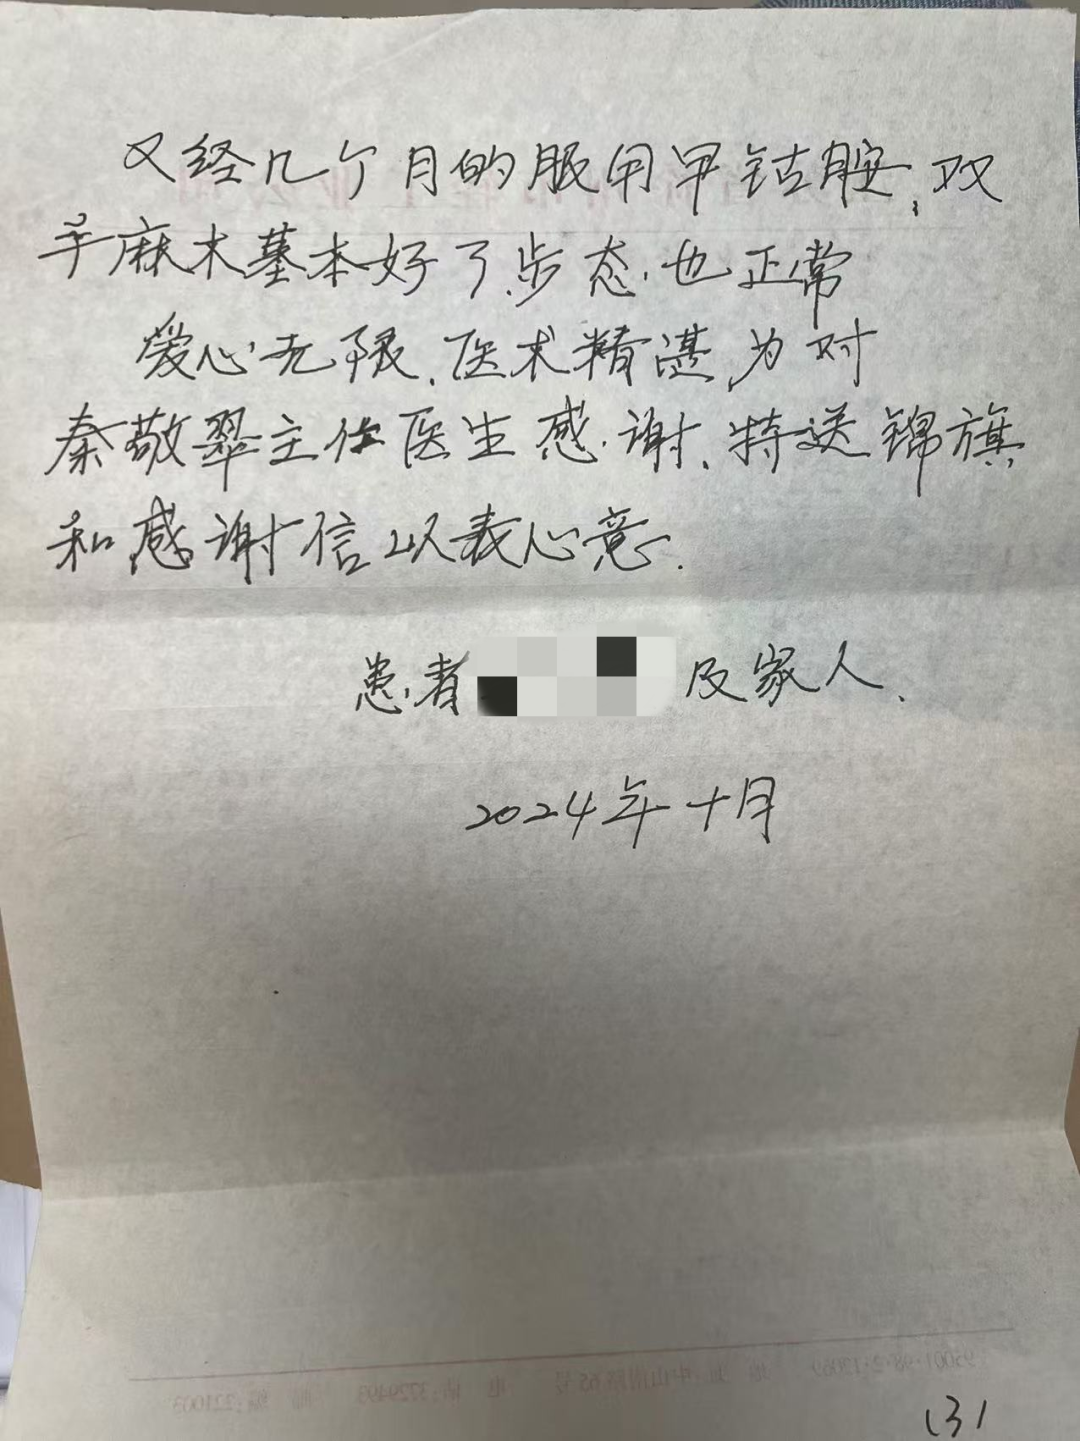 又经几个月的服用甲钴胺,双
手麻木基本好了.步态也正常
爱心无限.医术精湛,为对
秦敬翠主任医生感谢.特送锦旗
和感谢信以表心意.
患者
及家人.
2024年十月
(3)